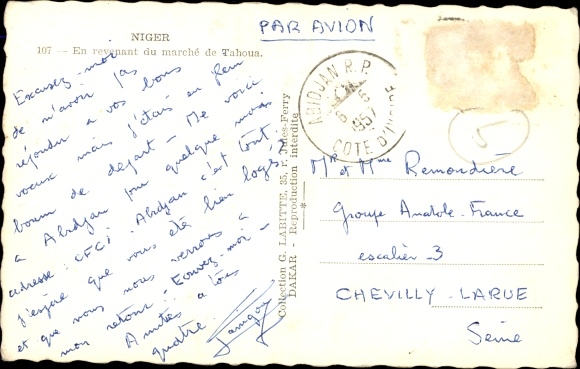 NIGER
107 — En revenant du marché de Tahoua.
PAR AVION
Excusez-moi
de n'avoir pas
répondre à vos bons
voeux mais j'étais en plein
boum de départ - Me voici
à Abidjan pour quelque mois
adresse : CFCI. Abidjan c'est tout.
J'espère que vous êtes bien logés ?
et que nous nous verrons à
mon retour - Ecrivez-moi -
Amitiés à tous
quatre.
Collection G. LABITTE, 35, r. Jules-Ferry
DAKAR - Reproduction interdite
ABIDJAN R.P.
6 - 5
1957
COTE D'IVOIRE
Mr et Mme Remondière
Groupe Anatole-France
escalier 3
CHEVILLY-LARUE
Seine